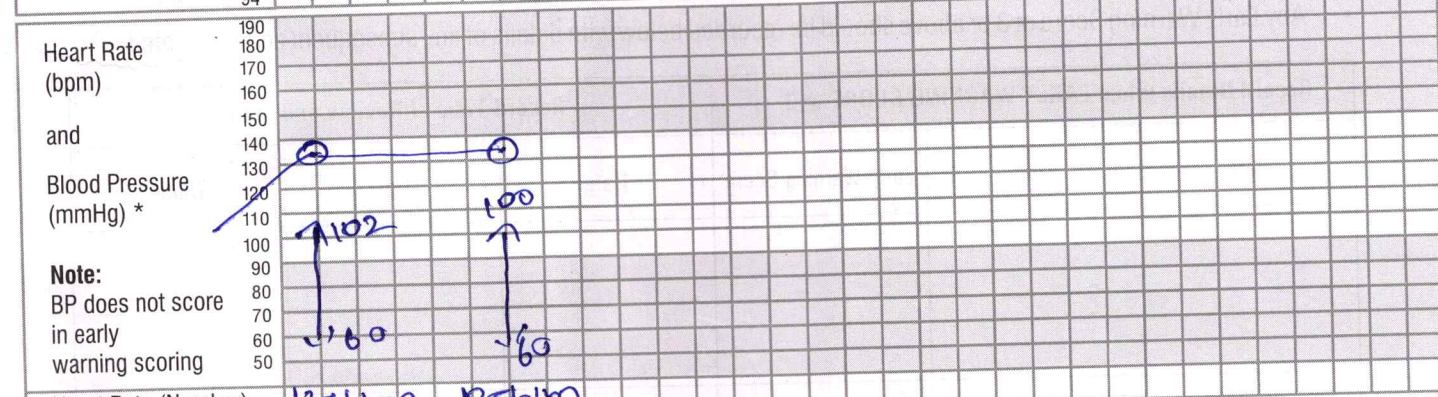 94
Heart Rate
(bpm)
and
Blood Pressure
(mmHg) *
Note:
BP does not score
in early
warning scoring
190
180
170
160
150
140
130
120
110
100
90
80
70
60
50
102
100
60
60